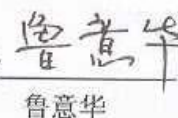 鲁意华
鲁意华